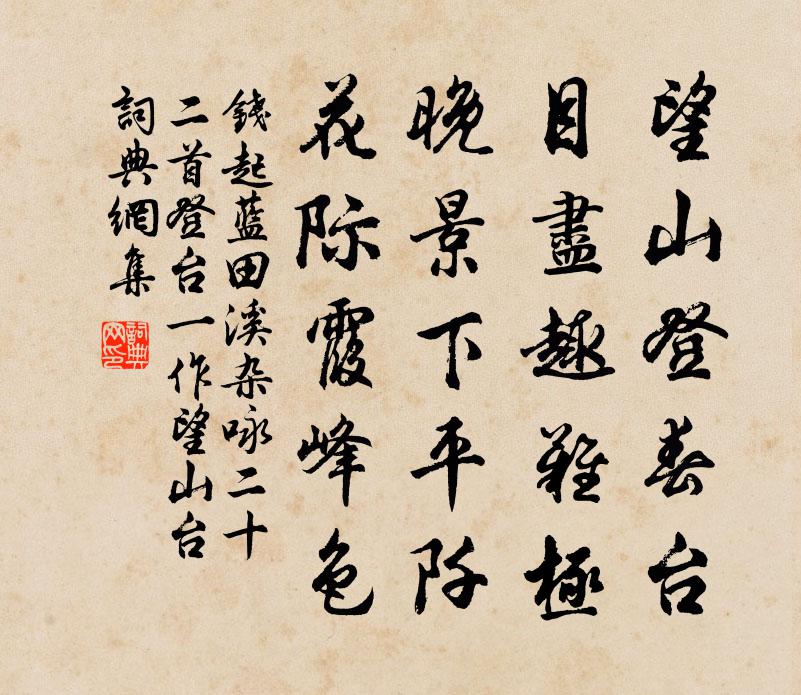 望山登春台
目盡趣難極
晚景下平阡
花际霞峰色
錢起藍田溪杂咏二十
二首登台一作望山台
詞典網集
詞典网印